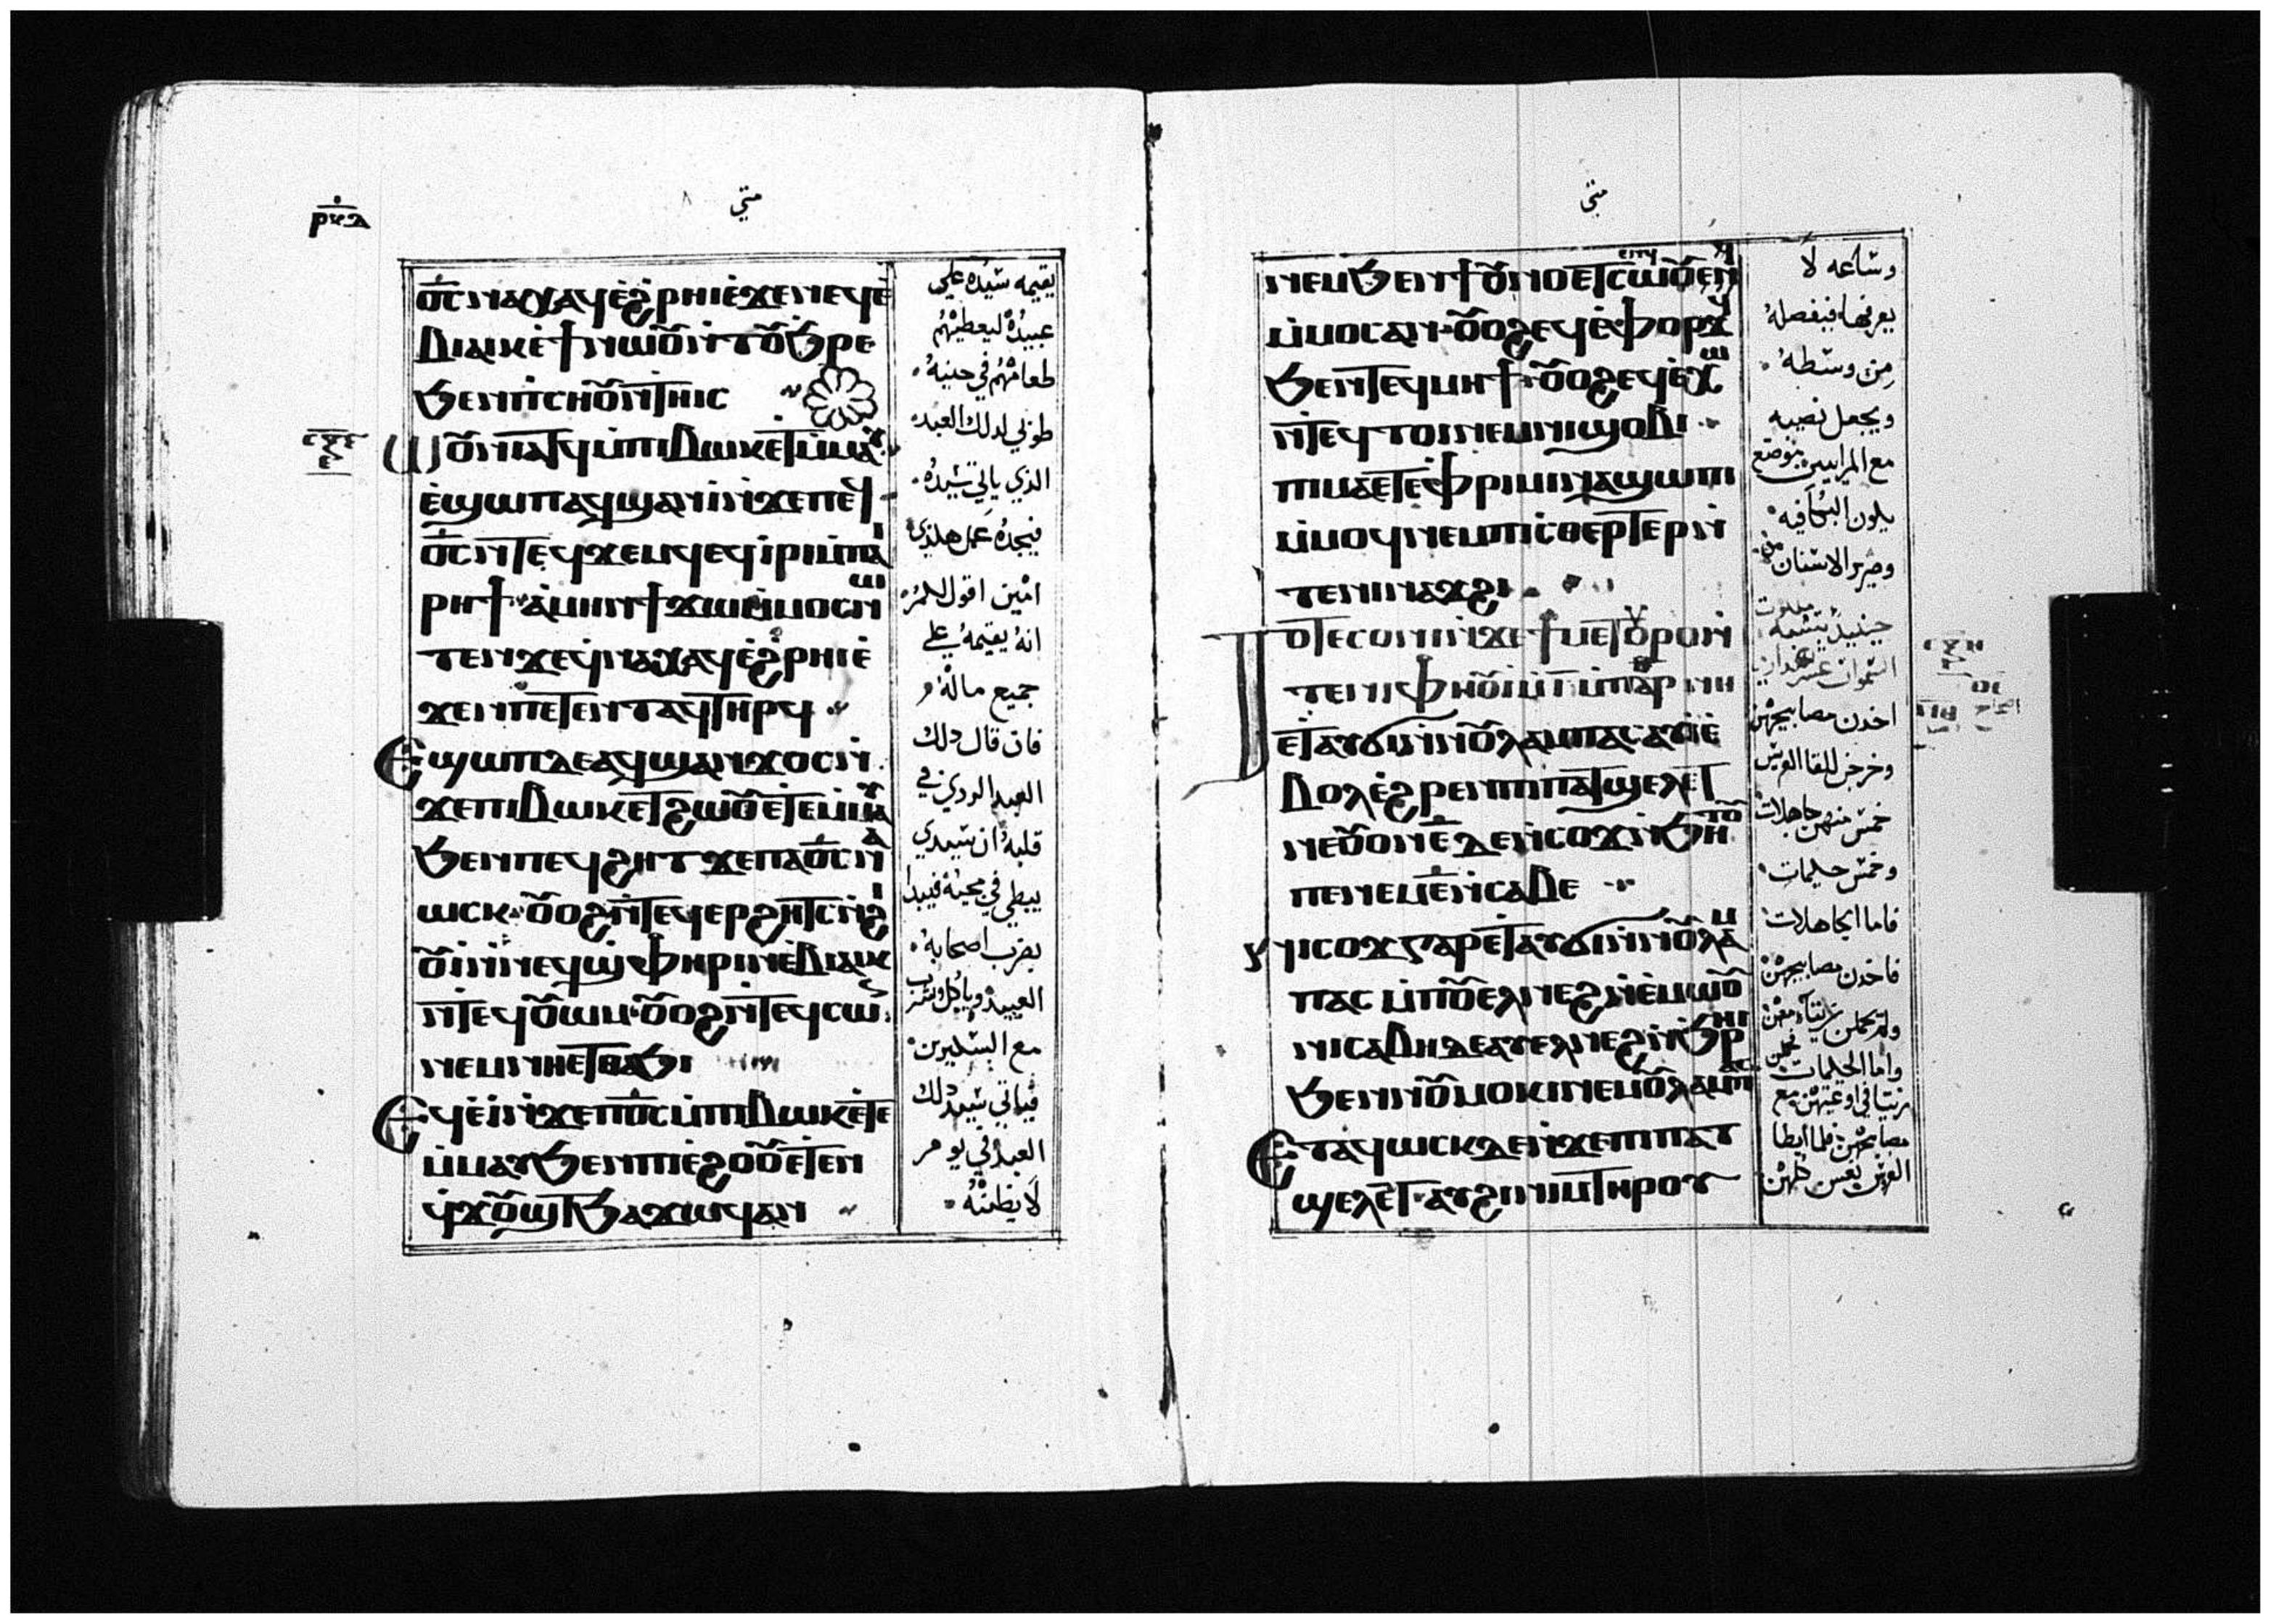 ⲣⲕⲇ
متي
ⲟ̅ⲥ̅ ⲛⲁⲭⲁϥ ⲉ̀ϩⲣⲏⲓ ⲉ̀ϫⲉⲛ ⲛⲉϥⲉ̀
ⲃⲓⲁⲓⲕ ⲉ̀ϯ ⲛⲱⲟⲩ ⲛ̀ⲧⲟⲩϧⲣⲉ
ϧⲉⲛ ⲡⲥⲏⲟⲩ ⲛ̀ⲧⲏⲓⲥ
ⲱⲟⲩⲛⲓⲁⲧϥ ⲙ̀ⲡⲓⲃⲱⲕ ⲉⲧⲉⲙ̀ⲙⲁⲩ
ⲉ̀ϣⲱⲡ ⲁϥϣⲁⲛⲓ̀ ⲛ̀ϫⲉ ⲡⲉϥ
ⲟ̅ⲥ̅ ⲛ̀ⲧⲉϥϫⲉⲙϥ ⲉϥⲓ̀ⲣⲓ ⲙ̀ⲡⲁⲓ
ⲣⲏϯ ⲁ̀ⲙⲏⲛ ϯϫⲱ ⲙ̀ⲙⲟⲥ ⲛⲱ
ⲧⲉⲛ ϫⲉ ϥⲛⲁⲭⲁϥ ⲉ̀ϩⲣⲏⲓ ⲉ̀
ϫⲉⲛ ⲡⲉⲧⲉⲛⲧⲁϥ ⲧⲏⲣϥ
ⲉϣⲱⲡ ⲇⲉ ⲁϥϣⲁⲛϫⲟⲥ ⲛ̀
ϫⲉ ⲡⲓⲃⲱⲕ ⲉⲧϩⲱⲟⲩ ⲉⲧⲉⲙ̀ⲙⲁⲩ
ϧⲉⲛ ⲡⲉϥϩⲏⲧ ϫⲉ ⲡⲁⲟ̅ⲥ̅ ⲛⲁ
ⲱⲥⲕ ⲟⲩⲟϩ ⲛ̀ⲧⲉϥⲉⲣϩⲏⲧⲥ ⲛ̀ϩⲓ
ⲟⲩⲓ̀ ⲛ̀ⲛⲉϥϣⲫⲏⲣ ⲛ̀ⲉ̀ⲃⲓⲁⲓⲕ
ⲛ̀ⲧⲉϥⲟⲩⲱⲙ ⲟⲩⲟϩ ⲛ̀ⲧⲉϥⲥⲱ
ⲛⲉⲙ ⲛⲏⲉⲧⲑⲁϧⲓ
ⲉϥⲉ̀ⲓ̀ ⲛ̀ϫⲉ ⲡⲟ̅ⲥ̅ ⲙ̀ⲡⲓⲃⲱⲕ ⲉⲧⲉ
ⲙ̀ⲙⲁⲩ ϧⲉⲛ ⲡⲓⲉ̀ϩⲟⲟⲩ ⲉⲧⲉⲛ
ϥϫⲟⲩϣⲧ ϧⲁϫⲱϥ ⲁⲛ
يقيمه سيده علي
عبيده ليعطيهم
طعامهم في حينه
طوبي لدلك العبد
الذي ياتي سيده
فيجده عمل هكذي
امين اقول لكم
انه يقيمه علي
جميع ماله
فان قال دلك
العبد الردي في
قلبه ان سيدي
يبطي في مجيه فيبدا
يضرب اصحابه
العبيد وياكل ويشرب
مع السكيرين
فياتي سيد دلك
العبد في يوم
لا يظنه
متى
ⲛⲉⲙ ϧⲉⲛ ϯⲟⲩⲛⲟⲩ ⲉⲧⲥⲱⲟⲩⲉⲛ
ⲙ̀ⲙⲟⲥ ⲁⲛ ⲟⲩⲟϩ ⲉϥⲉ̀ⲫⲟⲣϫϥ
ϧⲉⲛ ⲧⲉϥⲙⲏϯ ⲟⲩⲟϩ ⲉϥⲉ̀ⲭⲱ
ⲛ̀ⲧⲉϥⲧⲟⲓ ⲛⲉⲙ ⲛⲓϣⲟⲃⲓ
ⲡⲓⲙⲁ ⲉⲧⲉ ⲫⲣⲓⲙⲓ ⲛⲁϣⲱⲡⲓ
ⲙ̀ⲙⲟϥ ⲛⲉⲙ ⲡⲓⲥⲑⲉⲣⲧⲉⲣ ⲛ̀
ⲧⲉ ⲛⲓⲛⲁϫϩⲓ
ⲧⲟⲧⲉ ⲥⲟⲛⲓ ⲛ̀ϫⲉ ϯⲙⲉⲧⲟⲩⲣⲟ ⲛ̀
ⲧⲉ ⲛⲓⲫⲏⲟⲩⲓ̀ ⲙ̀ⲓ̅ ⲙ̀ⲡⲁⲣ ⲛⲏ
ⲉⲧⲁⲩϭⲓ ⲛ̀ⲛⲟⲩⲗⲁⲙⲡⲁⲥ ⲁⲩⲓ̀ ⲉ̀
ⲃⲟⲗ ⲉ̀ϩⲣⲉⲛ ⲡⲓⲡⲁⲧϣⲉⲗⲉⲧ
ⲛⲉ ⲟⲩⲟⲛ ⲉ̅ ⲇⲉ ⲛ̀ⲥⲟϫ ⲛ̀ϧⲏⲧⲟⲩ
ⲡⲉ ⲛⲉⲙ ⲉ̅ ⲛ̀ⲥⲁⲃⲉ
ⲛⲓⲥⲟϫ ⲅⲁⲣ ⲉⲧⲁⲩϭⲓ ⲛ̀ⲛⲟⲩⲗⲁⲙ
ⲡⲁⲥ ⲙ̀ⲡⲟⲩⲉⲗ ⲛⲉϩ ⲛⲉⲙⲱⲟⲩ
ⲛⲓⲥⲁⲃⲏ ⲇⲉ ⲁⲩⲉⲗ ⲛⲉϩ ⲛ̀ϧⲣⲏⲓ
ϧⲉⲛ ⲛⲟⲩⲙⲟⲕⲓ ⲛⲉⲙ ⲟⲩⲗⲁⲙⲡⲁⲥ
ⲉⲧⲁϥⲱⲥⲕ ⲇⲉ ⲛ̀ϫⲉ ⲡⲓⲡⲁⲧ
ϣⲉⲗⲉⲧ ⲁⲩϩⲓⲛⲓⲙ ⲧⲏⲣⲟⲩ
وساعه لا
يعرفها فيفصله
من وسطه
ويجعل نصيبه
مع المرايين موضع
يكون البكا فيه
وصرير الاسنان
حينيذ يتشبه ملكوت
السموات عشر
اخدن مصابيحهن
وخرجن للقا العريس
خمس منهن جاهلات
وخمس حكيمات
فاما الجاهلات
فاخدن مصابيحهن
ولم يحملن زيتا معهن
واما الحكيمات
زيتا في اوعيتهن مع
مصابيحهن فلما ابطا
العريس نعسن كلهن